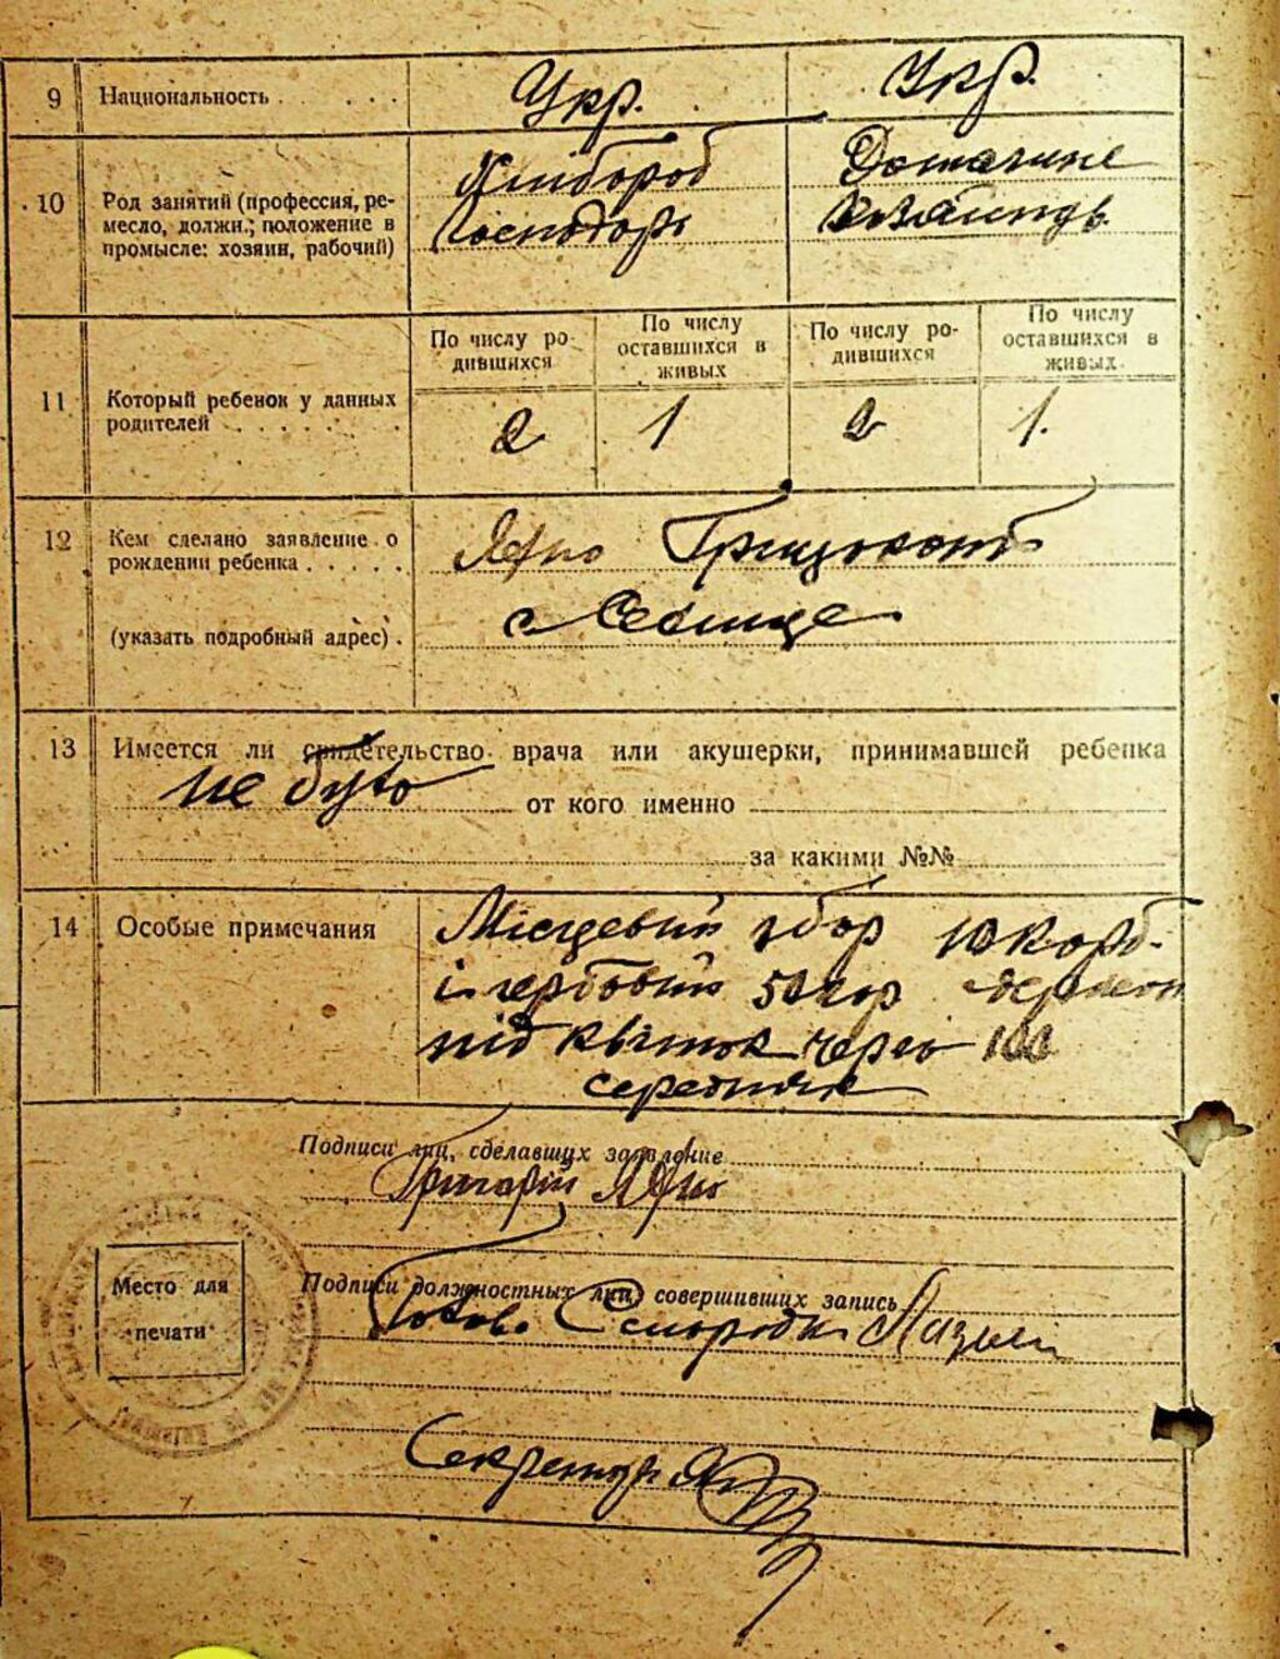 9 Национальность . . . . . . Укр. Укр.
10 Род занятий (профессия, ре-
месло, должн.; положение в
промысле: хозяин, рабочий)
Хлібороб
господарь
Домашнє
хозяиндь
11 Который ребенок у данных
родителей . . . . . . .
По числу ро-
дившихся
По числу
оставшихся в
живых
По числу ро-
дившихся
По числу
оставшихся в
живых.
2 1 2 1.
12 Кем сделано заявление о
рождении ребенка . . . . .
(указать подробный адрес) .
с
13 Имеется ли свидетельство врача или акушерки, принимавшей ребенка
не було от кого именно
за какими №№
14 Особые примечания
Місцевий збор 10 кор
і гербовий 50 кор
під квіток через
середняк
Подписи лиц, сделавших заявление
Григорій
Подписи должностных лиц совершивших запись
Голова
Место для
печати
Секретарь